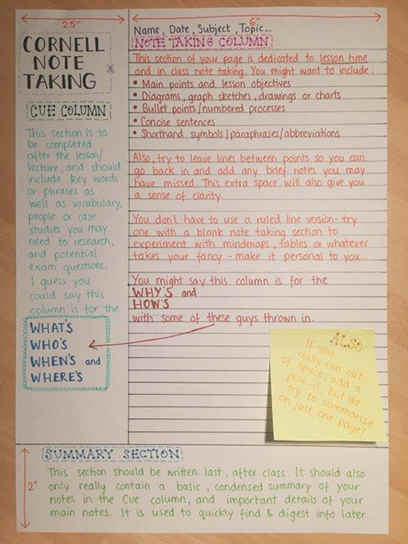 2.5"
6"
CORNELL
NOTE
TAKING
CUE COLUMN
This section is to
be completed
after the lesson/
lecture, and should
include key words
or phrases as
well as vocabulary,
people or case
studies you may
need to research,
and potential
exam questions.
I guess you
could say this
column is for the
WHAT'S
WHO'S
WHEN'S and
WHERE'S
Name, Date, Subject, Topic...
NOTE TAKING COLUMN
This section of your page is dedicated to lesson time
and in class note taking. You might want to include:
* Main points and lesson objectives
* Diagrams, graph sketches, drawings or charts
* Bullet points/numbered processes
* Concise sentences
* Shorthand, symbols/paraphrases/abbreviations
Also, try to leave lines between points so you can
go back in and add any brief notes you may
have missed. This extra space will also give you
a sense of clarity.
You don't have to use a ruled line version - try
one with a blank note taking section to
experiment with mindmaps, tables or whatever
takes your fancy - make it personal to you...
You might say this column is for the
WHY'S and
HOW'S
with some of these guys thrown in.
ALSO
If you
really run out
of space, add a
post-it, but do
try to summarise
on just one page!
2"
SUMMARY SECTION
This section should be written last, after class. It should also
only really contain a basic, condensed summary of your
notes in the Cue column, and important details of your
main notes. It is used to quickly find & digest info later